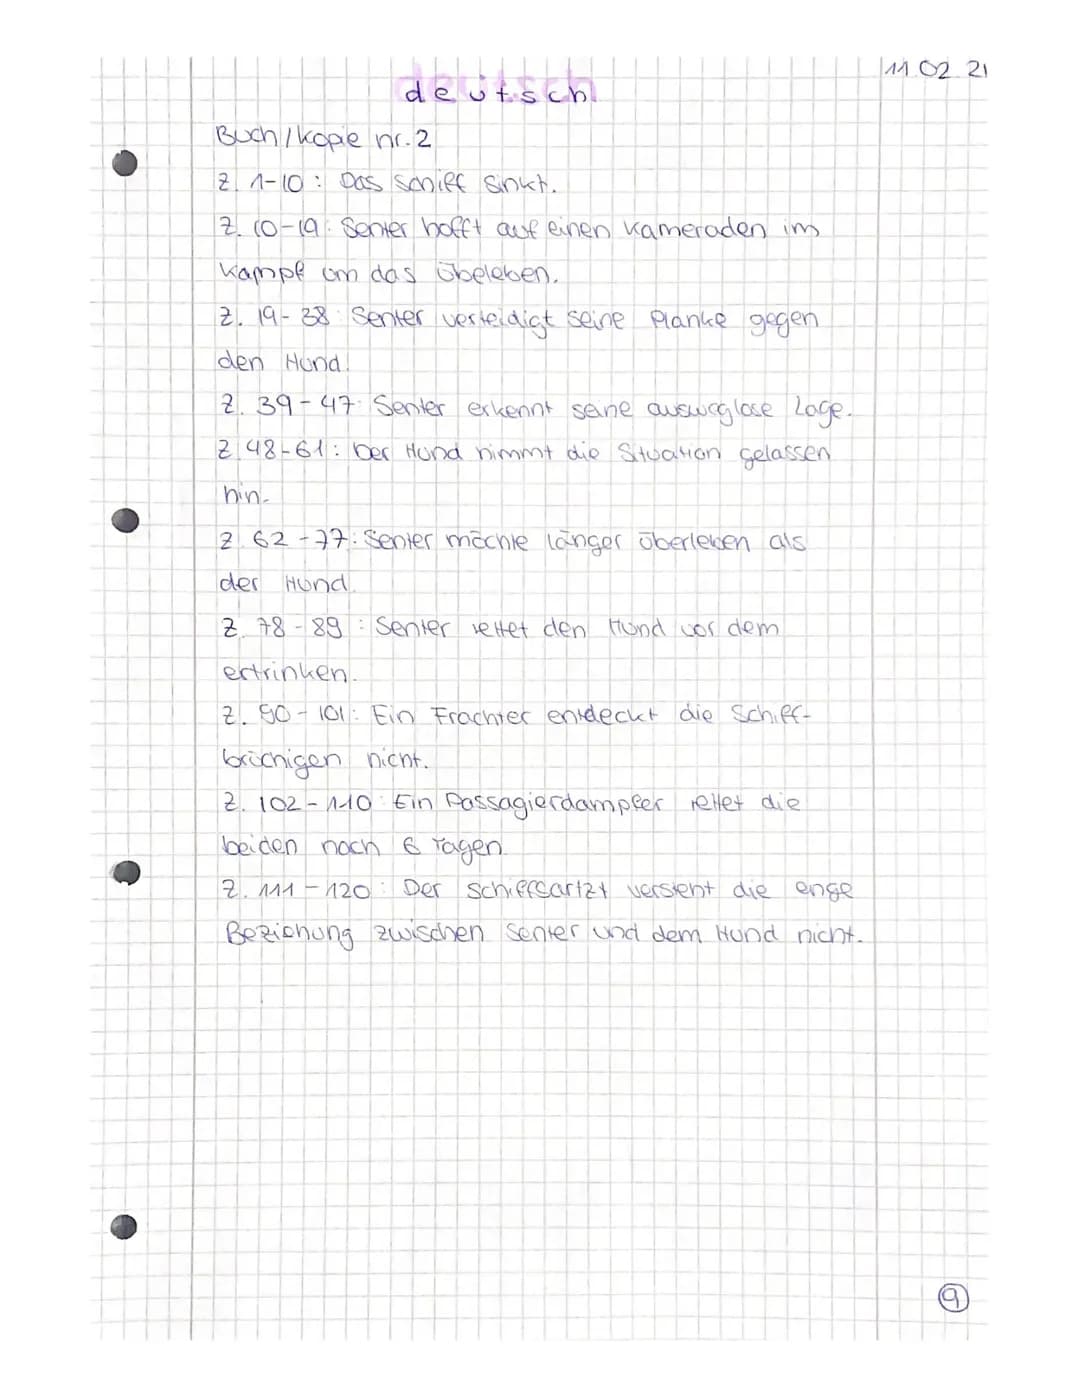 11.02.21
deutsch
Buch/kopie nr. 2
Z. 1-10: Das Schiff sinkt.
Z. 10-19: Senter hofft auf einen Kameraden im
Kampf um das Übeleben.
Z. 19-38: Senter verteidigt seine Planke gegen
den Hund.
Z. 39-47: Senter erkennt seine ausweglose Lage.
Z. 48-61: Der Hund nimmt die Situation gelassen
hin.
Z. 62-77: Senter möchte länger überleben als
der Hund.
Z. 78-89: Senter rettet den Hund vor dem
ertrinken.
Z. 90-101: Ein Frachter entdeckt die Schiff-
brüchigen nicht.
Z. 102-110: Ein Passagierdampfer rettet die
beiden nach 6 Tagen.
Z. 111-120: Der Schiffsartzt versteht die enge
Beziehung zwischen Senter und dem Hund nicht.
9